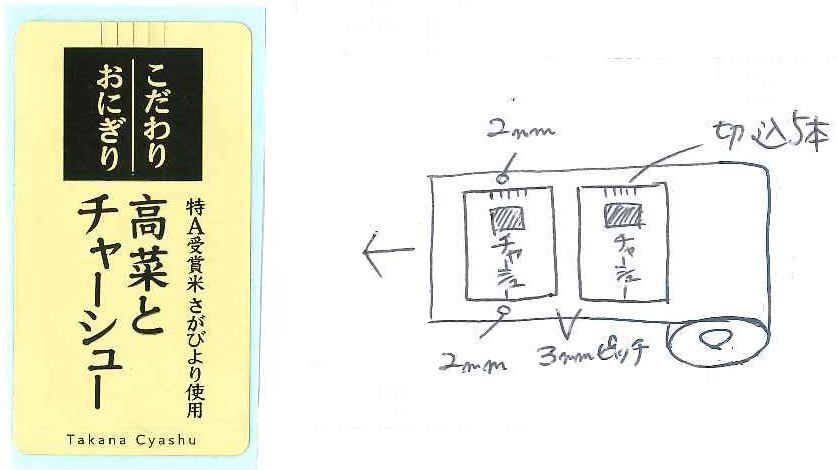 こだわり
おにぎり
特A受賞米 さがびより使用
高菜と
チャーシュー
Takana Cyashu
2mm
切込5本
チャーシュー
チャーシュー
2mm
3mmピッチ